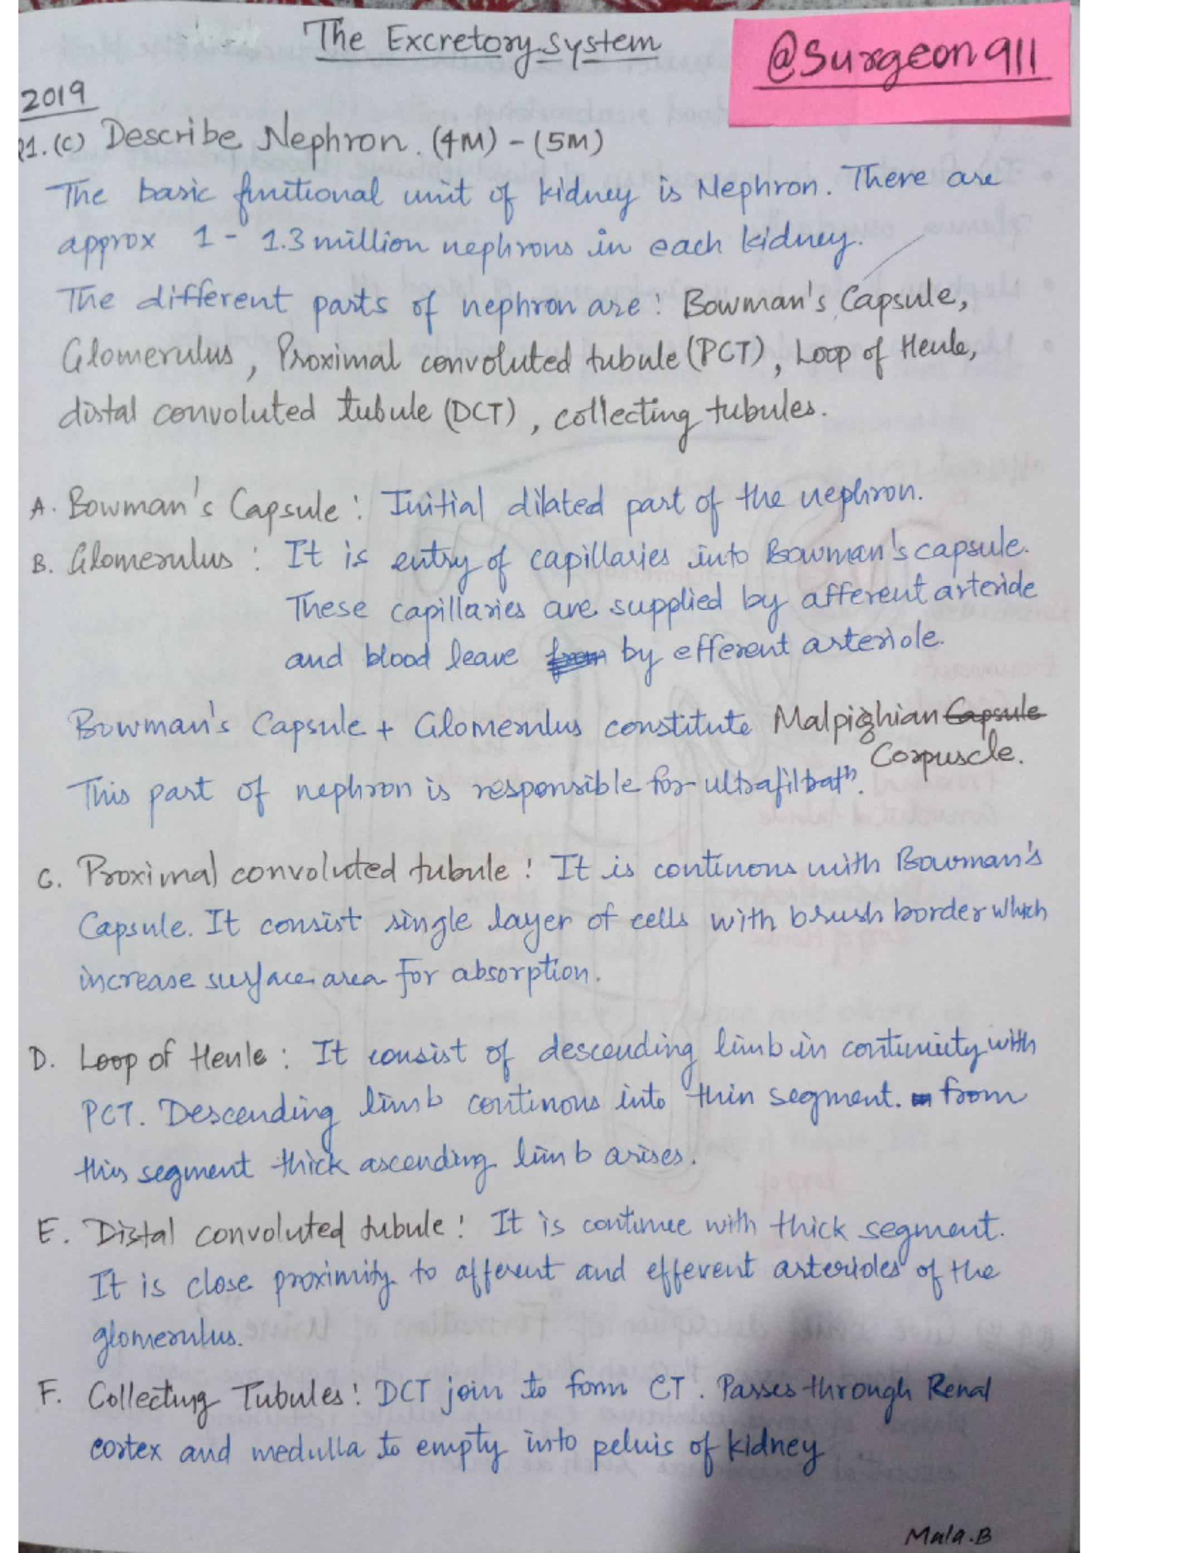 The Excretory system
@Surgeon911
2019
Q1.(C) Describe Nephron. (4M) - (5M)
The basic funitional unit of kidney is Nephron. There are
approx 1 - 1.3 million nephrons in each kidney.
The different parts of nephron are : Bowman's Capsule,
Glomerulus, Proximal convoluted tubule (PCT), Loop of Henle,
distal convoluted tubule (DCT), collecting tubules.
A. Bowman's Capsule : Initial dilated part of the nephron.
B. Glomerulus : It is entry of capillaries into Bowman's capsule.
These capillaries are supplied by afferent arteriole
and blood leave from by efferent arteriole.
Bowman's Capsule + Glomerulus constitute Malpighian Capsule
Corpuscle.
This part of nephron is responsible for ultrafiltratn.
C. Proximal convoluted tubule : It is continous with Bowman's
Capsule. It consist single layer of cells with brush border which
increase surface area for absorption.
D. Loop of Henle : It consist of descending limb in continuity with
PCT. Descending limb continous into thin segment. from
this segment thick ascending limb arises.
E. Distal convoluted tubule : It is continue with thick segment.
It is close proximity to afferent and efferent arterioles of the
glomerulus.
F. Collecting Tubules : DCT join to form CT. Passes through Renal
cortex and medulla to empty into pelvis of kidney
Mala.B